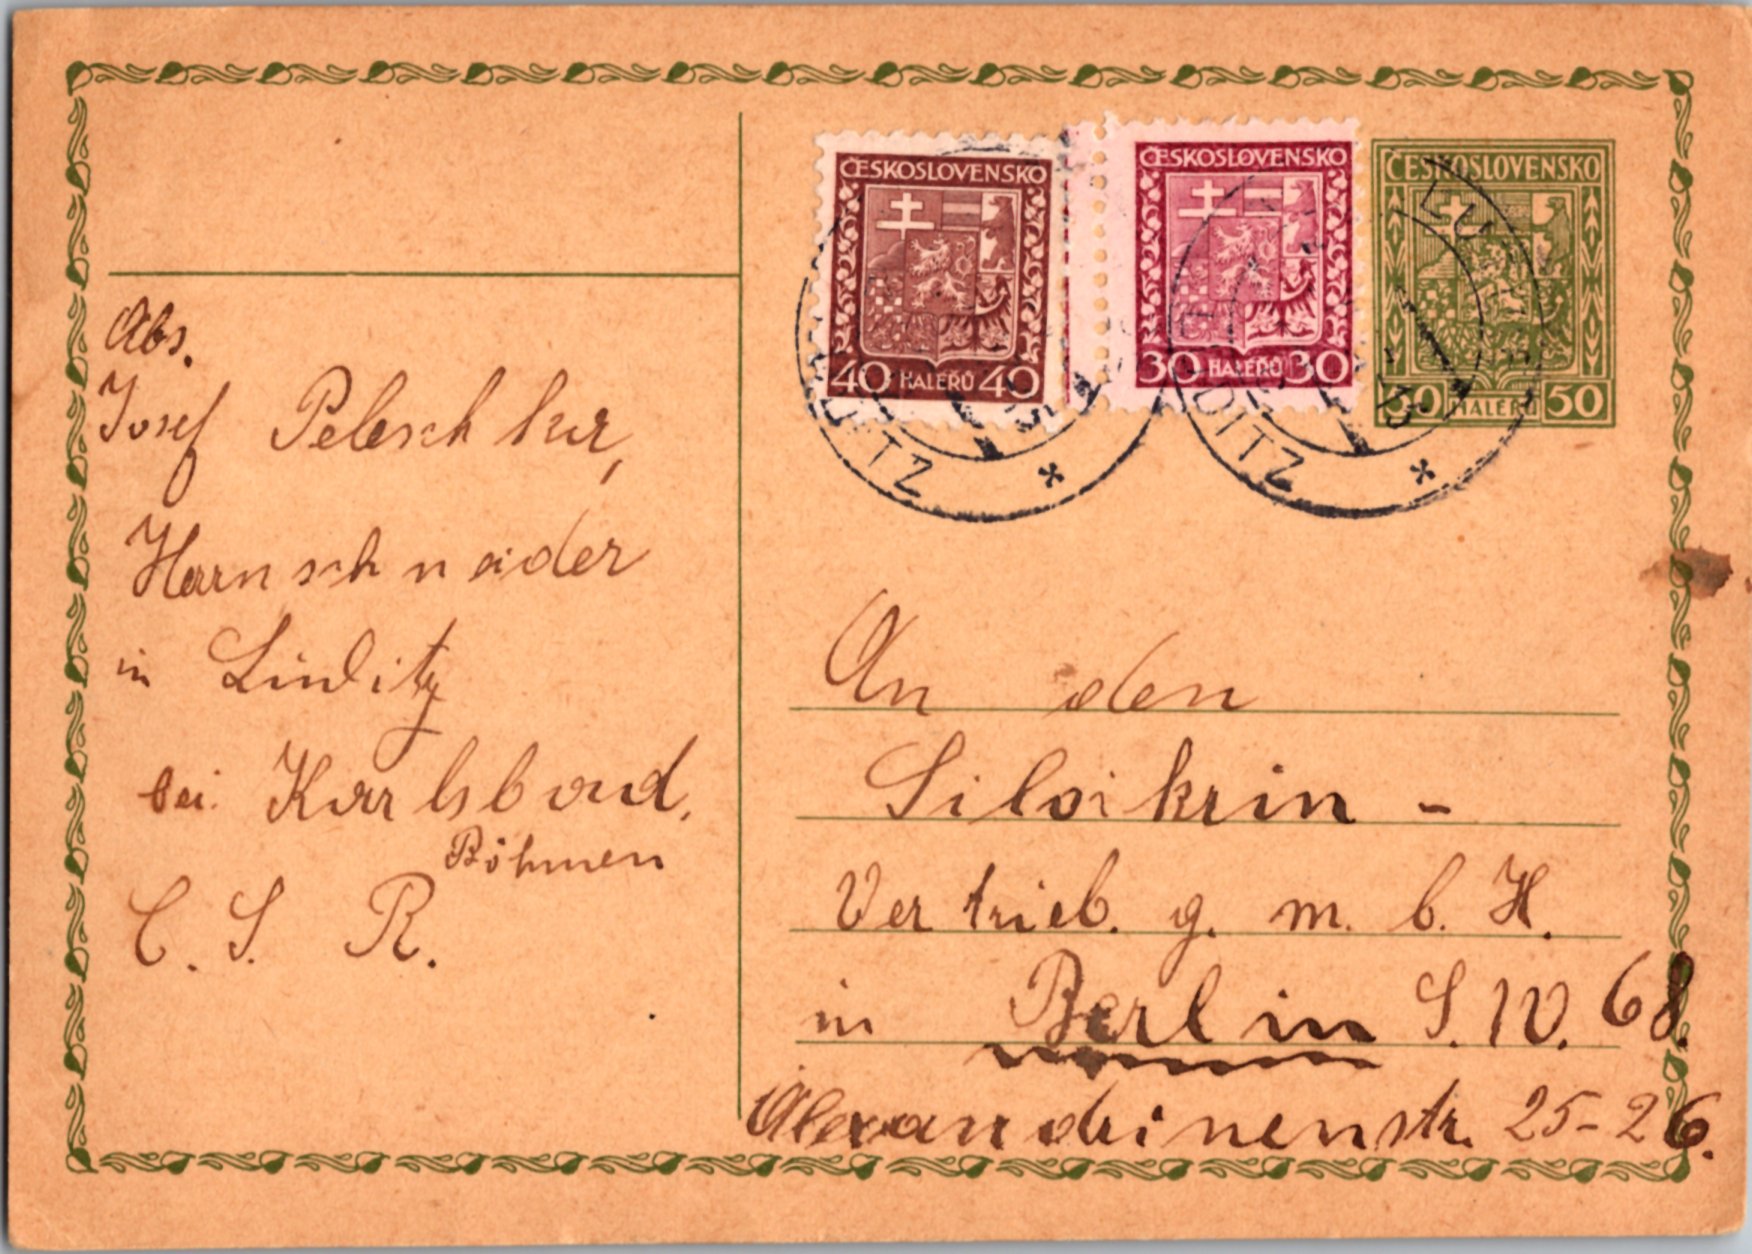 ČESKOSLOVENSKO
40 HALÉŘŮ 40
ČESKOSLOVENSKO
30 HALÉŘŮ 30
ČESKOSLOVENSKO
50 HALÉŘŮ 50
DITZ
Abs.
Josef Peleschka,
Harnschneider
in Luditz
bei Karlsbad,
Böhmen
C. S. R.
An den
Silvikrin -
Vertrieb. g. m. b. H.
in Berlin S. W. 68.
Alexandrinenstr. 25-26.